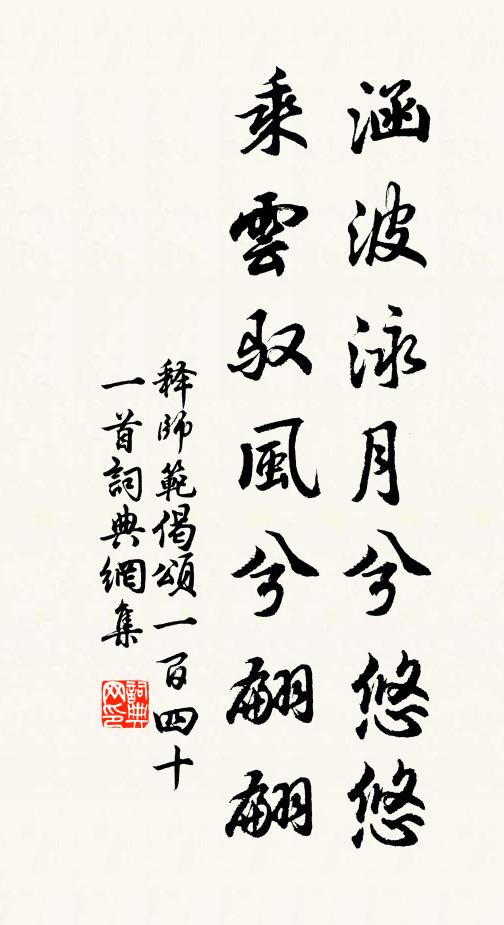 涵波泳月兮悠悠
乘雲馭風兮翩翩
释師範偈頌一百四十
一首詞典網集
詞典網印